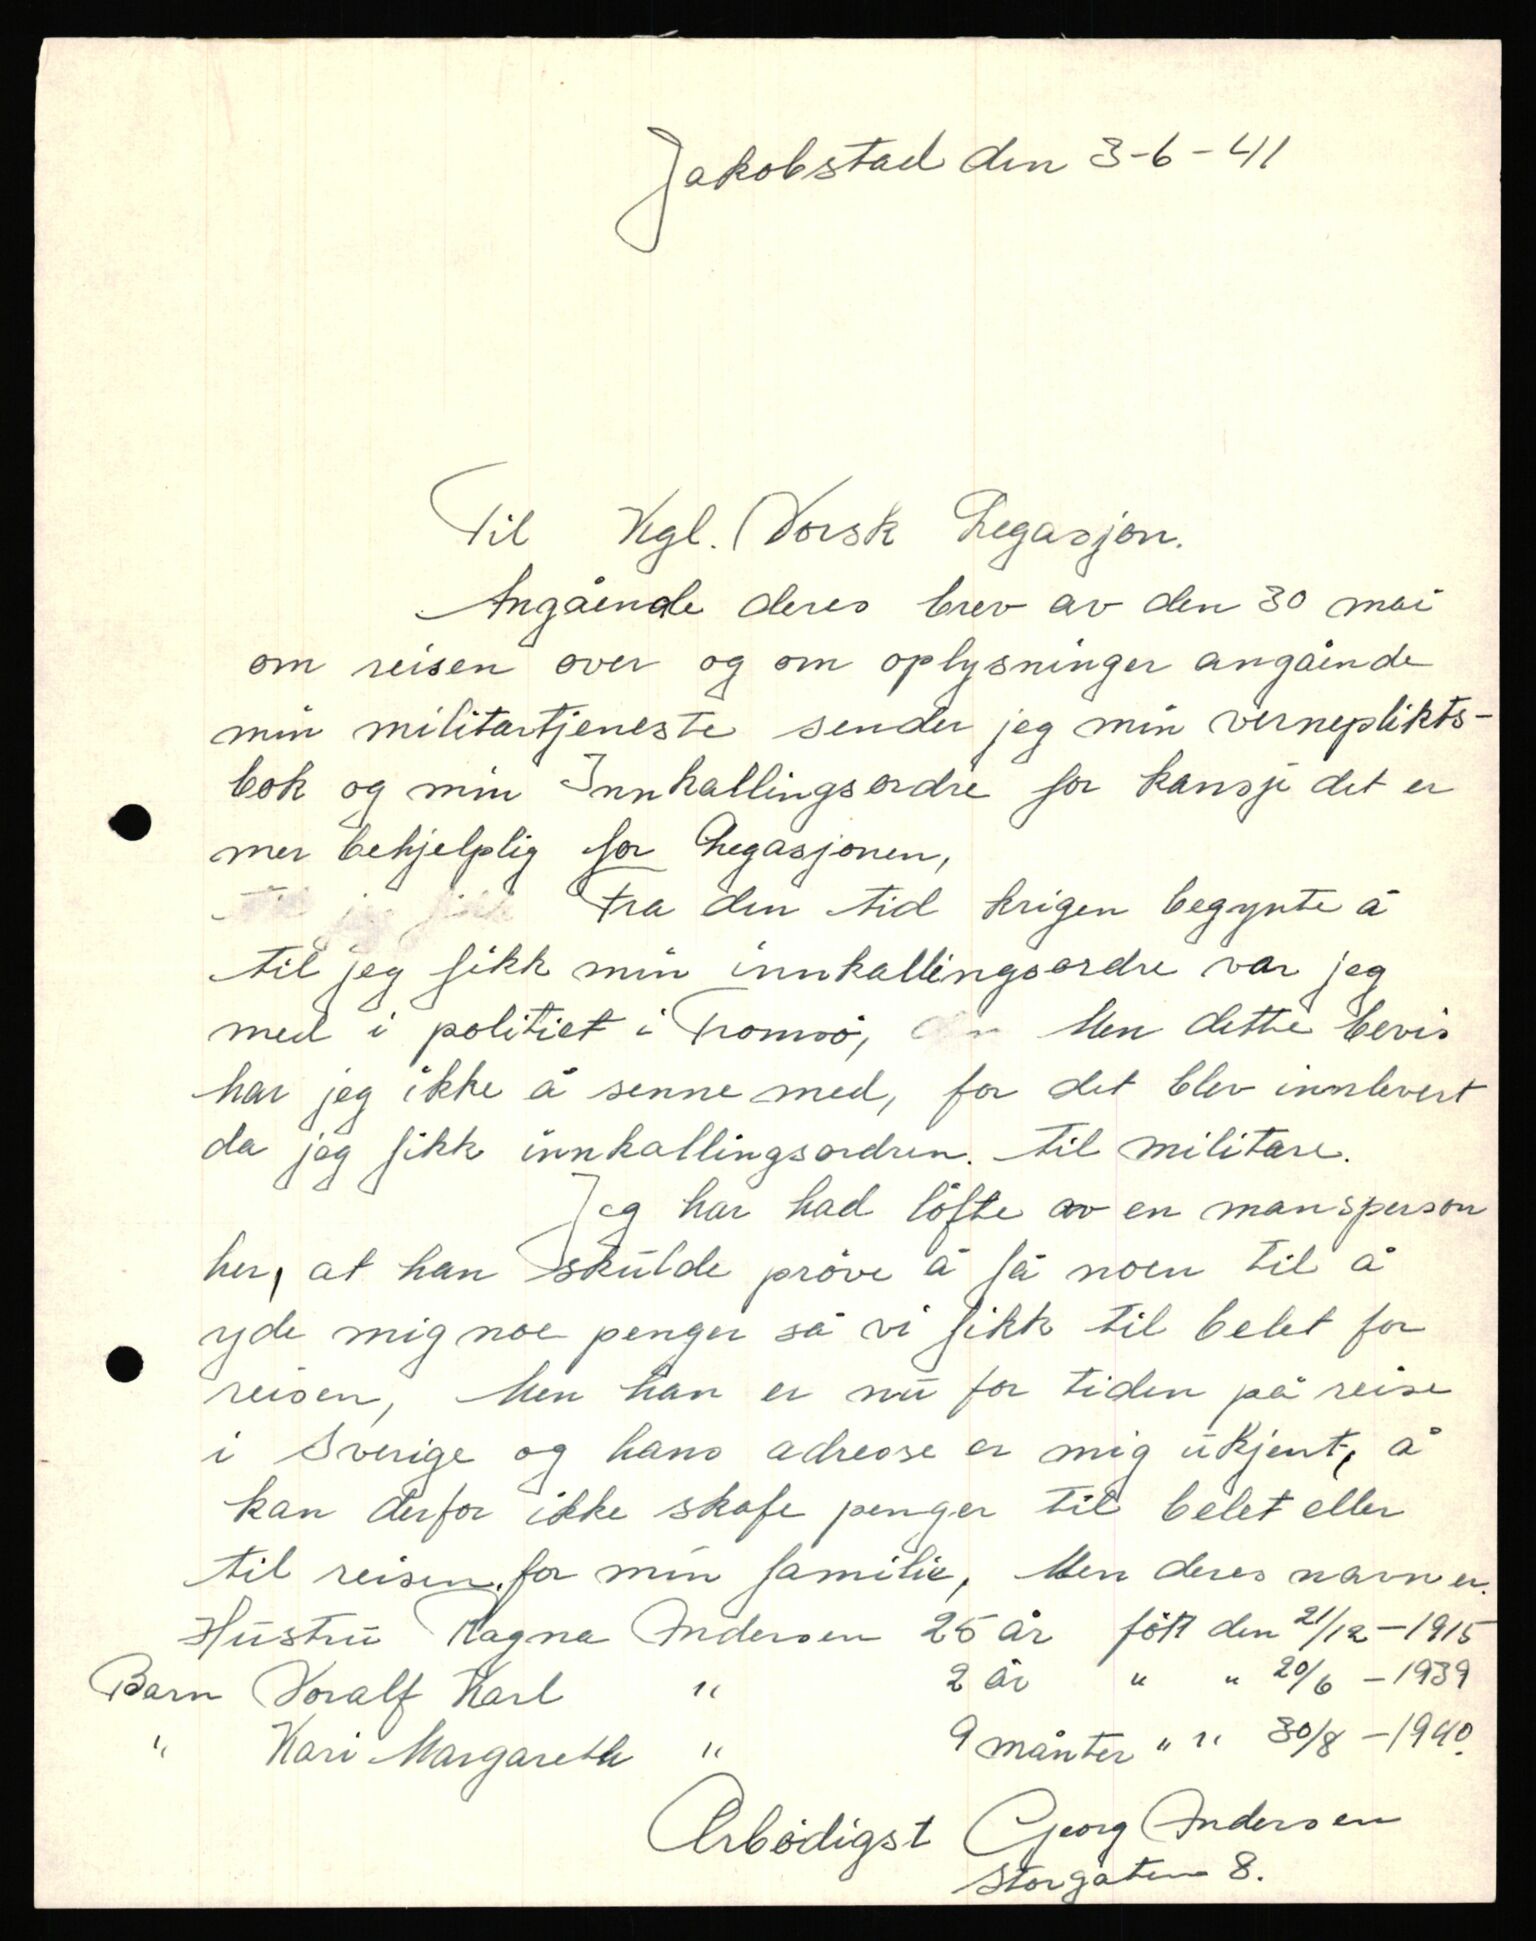 Jakobstad den 3-6-41
Til Kgl. Norsk Legasjon.
Angående deres brev av den 30 mai
om reisen over og om oplysninger angående
min militærtjeneste sender jeg min verneplikts-
bok og min Innkallingsordre for kansje det er
mer behjelplig for Legasjonen,
Fra den tid krigen begynte å
til jeg fikk min innkallingsordre var jeg
med i politiet i Tromsö, Men dette bevis
har jeg ikke å senne med, for det blev innlevert
da jeg fikk innkallingsordren. til militære.
Jeg har had löfte av en mansperson
her, at han skulde pröve å få noen til å
yde mig noe penger så vi fikk til belet for
reisen, Men han er nu for tiden på reise
i Sverige og hans adresse er mig ukjent, å
kan derfor ikke skafe penger til belet eller
til reisen for min familie, Men deres navn er.
Hustru Ragna Andersen 25 år föt den 21/12-1915
Barn Noralf Karl " 2 år " " 20/6 -1939
" Kari Margareth " 9 månter " " 30/8 -1940.
Ærbödigst Georg Andersen
Storgaten 8.